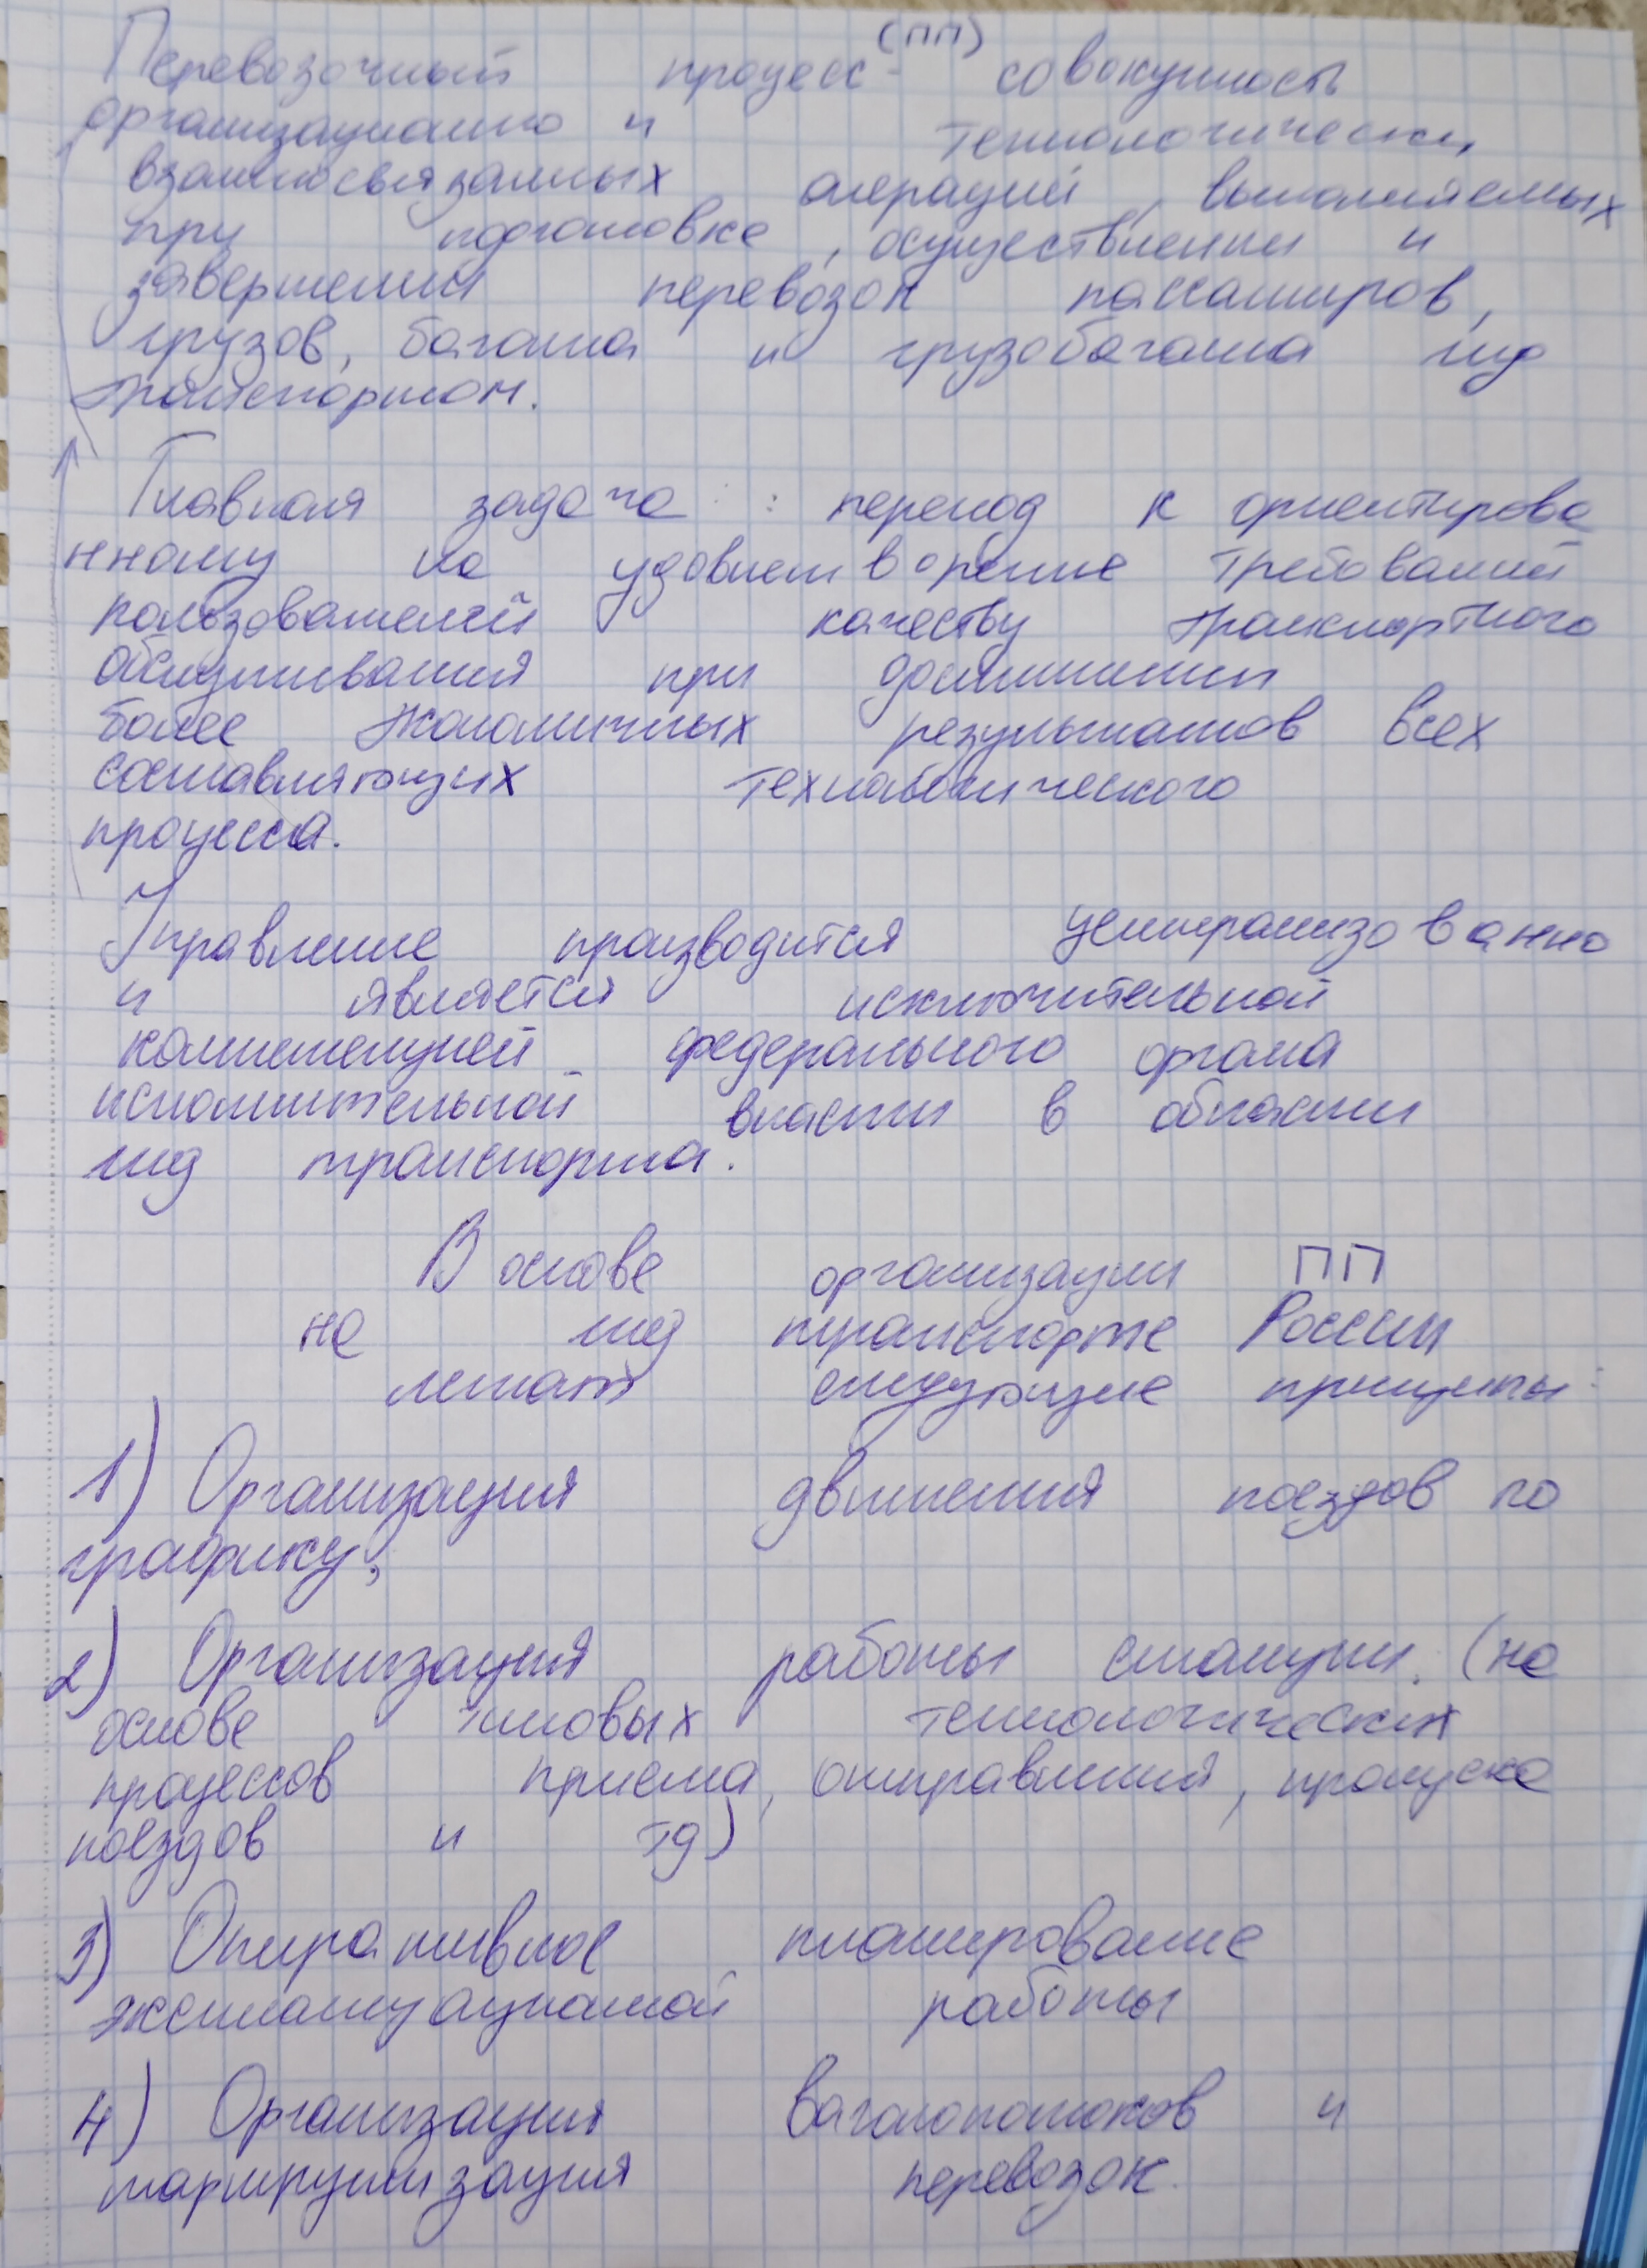 Перевозочный процесс (ПП) - совокупность
организационно и технологически
взаимосвязанных операций, выполняемых
при подготовке, осуществлении и
завершении перевозок пассажиров,
грузов, багажа и грузобагажа жд
транспортом.
Главная задача : переход к ориентирова
нному на удовлетворение требований
пользователей качеству транспортного
обслуживания при достижении
более экономичных результатов всех
составляющих технологического
процесса.
Управление производится централизованно
и является исключительной
компетенцией федерального органа
исполнительной власти в области
жд транспорта.
В основе организации ПП
на жд транспорте России
лежат следующие принципы:
1) Организация движения поездов по
графику;
2) Организация работы станции. (на
основе типовых технологических
процессов приема, отправления, пропуска
поездов и тд)
3) Оперативное планирование
эксплуатационной работы
4) Организация вагонопотоков и
маршрутизация перевозок.